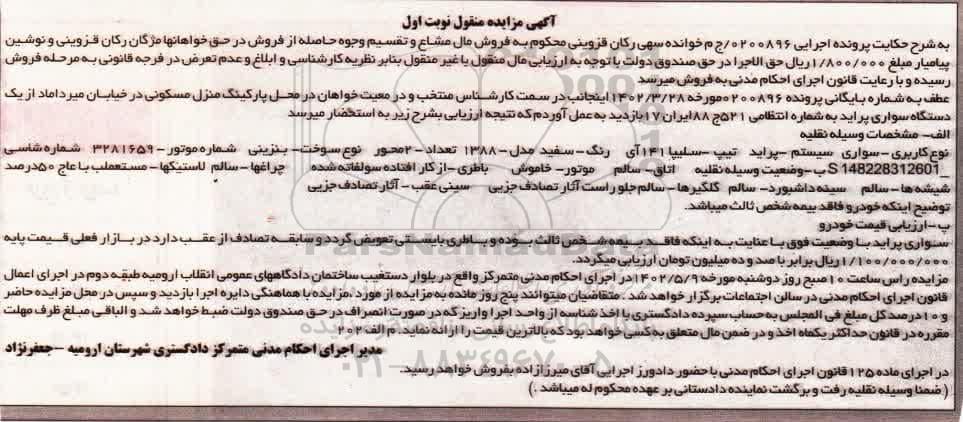 آگهی مزایده منقول نوبت اول
به شرح حکایت پرونده اجرایی ۰۲۰۰۸۹۶/ج م خوانده سهی رکان قزوینی محکوم به فروش مال مشاع و تقسیم وجوه حاصله از فروش در حق خواهانها مژگان رکان قزوینی و نوشین
پیامبار مبلغ ۱/۸۰۰/۰۰۰ریال حق الاجرا در حق صندوق دولت با توجه به ارزیابی مال منقول یا غیر منقول بنابر نظریه کارشناسی و ابلاغ و عدم تعرض در فرجه قانونی به مرحله فروش
رسیده و با رعایت قانون اجرای احکام مدنی به فروش میرسد
عطف به شماره بایگانی پرونده ۰۲۰۰۸۹۶مورخه ۱۴۰۲/۳/۲۸اینجانب در سمت کارشناس منتخب و در معیت خواهان در محل پارکینگ منزل مسکونی در خیابان میرداماد از یک
دستگاه سواری پراید به شماره انتظامی ۵۲۱ج۸۸ایران۱۷بازدید به عمل آوردم که نتیجه ارزیابی بشرح زیر به استحضار میرسد
الف- مشخصات وسیله نقلیه
نوع کاربری - سواری سیستم - پراید تیپ -سلیپا ۱۴۱آی رنگ - سفید مدل -۱۳۸۸ تعداد -۲محور نوع سوخت- بنزینی شماره موتور -۳۲۸۱۶۵۹ شماره شاسی
_S 148228312601 ب -وضعیت وسیله نقلیه اتاق- سالم موتور- خاموش باطری -از کار افتاده سولفاته شده چراغها- سالم لاستیکها - مستعملب با عاج ۵۰درصد
شیشه ها - سالم سینه داشبورد- سالم گلگیرها - سالم جلو راست آثار تصادف جزیی سینی عقب - آثار تصادف جزیی
توضیح اینکه خودرو فاقد بیمه شخص ثالث میباشد.
ب - ارزیابی قیمت خودرو
سواری پراید با وضعیت فوق با عنایت به اینکه فاقد بیمه شخص ثالث بوده و باطری بایستی تعویض گردد و سابقه تصادف از عقب دارد در بازار فعلی قیمت پایه
۱/۱۰۰/۰۰۰/۰۰۰ریال برابر با صد و ده میلیون تومان ارزیابی میگردد.
مزایده راس ساعت ۱۰صبح روز دوشنبه مورخه ۱۴۰۲/۵/۹در اجرای احکام مدنی متمرکز واقع در بلوار دستغیب ساختمان دادگاههای عمومی انقلاب ارومیه طبقه دوم در اجرای اعمال
قانون اجرای احکام مدنی در سالن اجتماعات برگزار خواهد شد . متقاضیان میتوانند پنج روز مانده به مزایده از مورد ،مزایده با هماهنگی دایره اجرا بازدید و سپس در محل مزایده حاضر
و ۱۰درصد کل مبلغ فی المجلس به حساب سپرده دادگستری با اخذ شناسه از واحد اجرا واریز که در صورت انصراف در حق صندوق دولت ضبط خواهد شد و الباقی مبلغ ظرف مهلت
مقرره در قانون حداکثر یکماه اخذ و در ضمن مال متعلق به کسی خواهد بود که بالاترین قیمت را ارائه نماید. م الف۲۰۲
مدیر اجرای احکام مدنی متمرکز دادگستری شهرستان ارومیه -جعفرنژاد
در اجرای ماده ۱۲۵قانون اجرای احکام مدنی با حضور دادورز اجرایی آقای میرزازاده بفروش خواهد رسید.
( ضمنا وسیله نقلیه رفت و برگشت نماینده دادستانی بر عهده محکوم له میباشد .)
۰۲۱-۸۸۳۴۹۶۷۰-۵